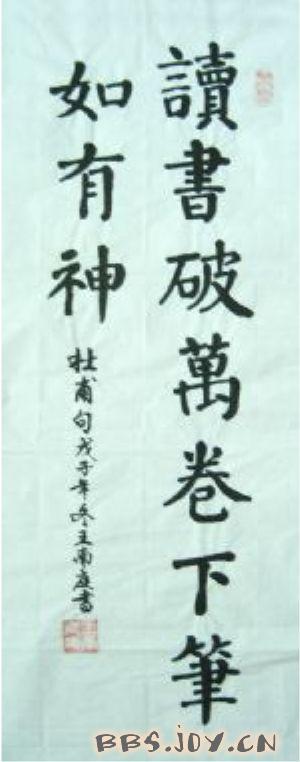 讀書破萬卷下筆
如有神
杜甫句戊子年冬王南庭書
BBS.JOY.CN